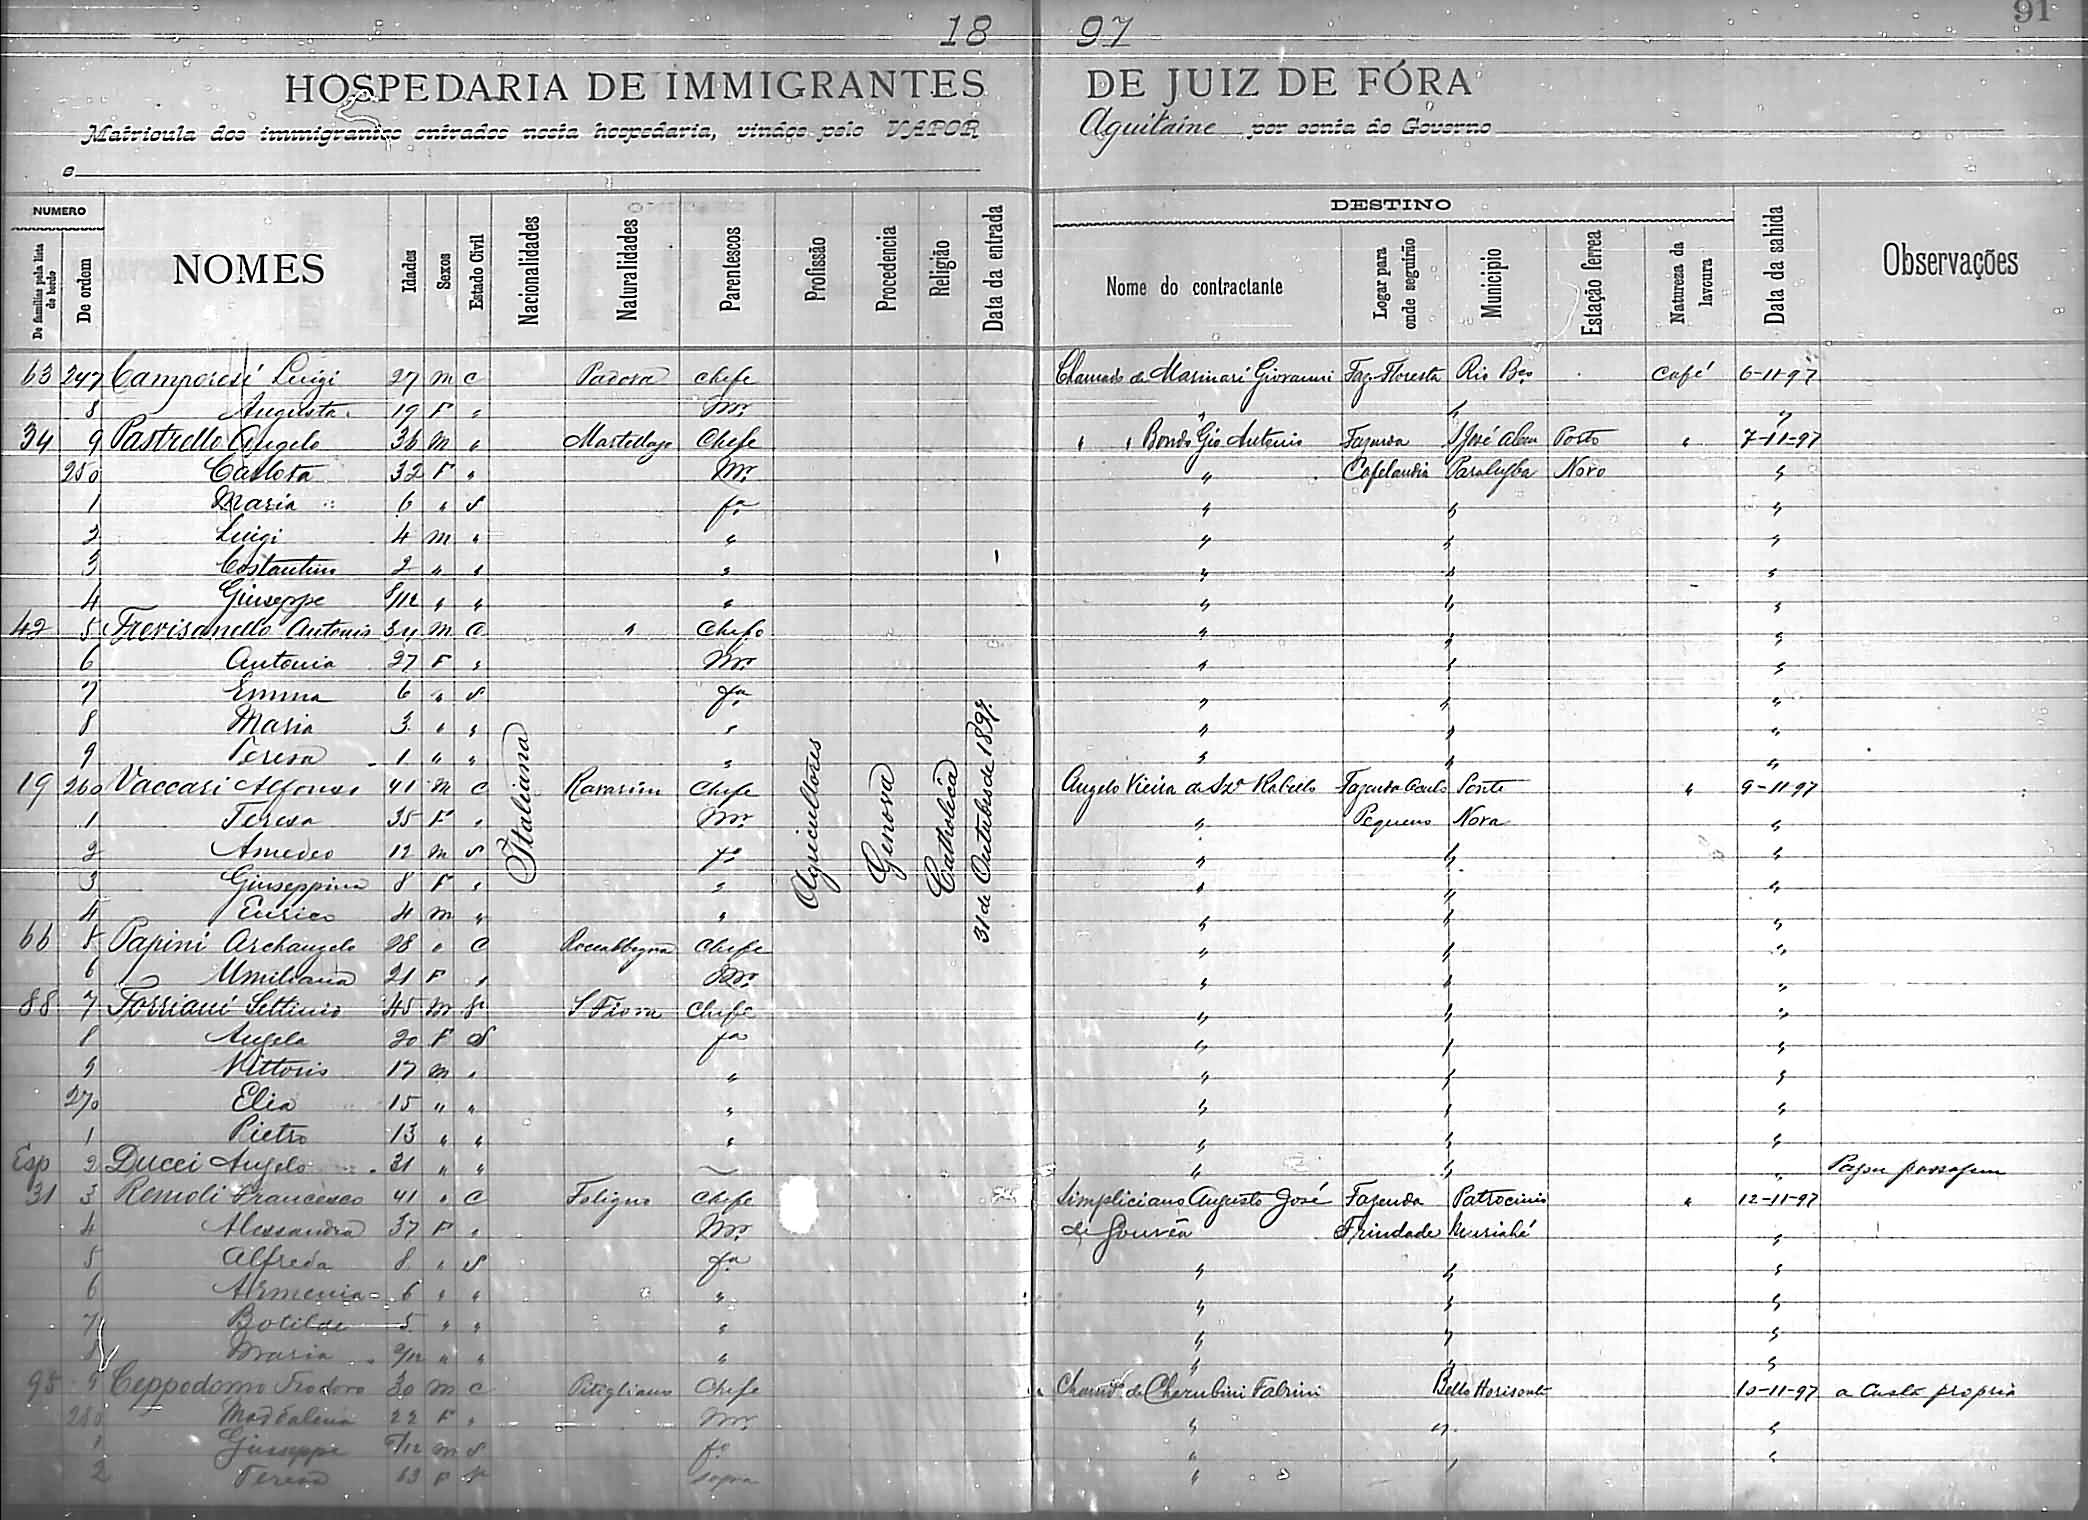 18 97
91
HOSPEDARIA DE IMMIGRANTES DE JUIZ DE FÓRA
Matricula dos immigrantes entrados nesta hospedaria, vindos pelo VAPOR Aquitaine por conta do Governo
e
NUMERO
DESTINO
De familia pela lista de bordo De ordem NOMES Idades Sexos Estado Civil Nacionalidades Naturalidades Parentescos Profissão Procedencia Religião Data da entrada Nome do contractante Logar para onde seguirão Municipio Estação ferrea Natureza da lavoura Data da sahida Observações
63 247 Camporesi Luigi 27 M C Padova Chefe Chamado de Marinari Giovanni Faz. Floresta Rio Bco Café 6-11-97
8 Augusta 19 F " Mr. " " "
34 9 Pastrello Angelo 36 M " Martellago Chefe " " Bondo Gio Antonio Fazenda S José Alem Porto " 7-11-97
250 Carlota 32 F " Mr. " Cafelandia Parahyba Novo "
1 Maria 6 " S fa " " "
2 Luigi 4 M " " " " "
3 Costantino 2 " " " " " "
4 Giuseppe 8/12 " " " " " "
42 5 Trevisanello Antonio 34 M C " Chefe " " "
6 Antonia 27 F " Mr. " " "
7 Emma 6 " S fa " " "
8 Maria 3 " " " " " "
9 Teresa 1 " " " " " "
19 260 Vaccari Alfonso 41 M C Ravarim Chefe Angelo Vieira de Sza Rabello Fazenda Ponte " 9-11-97
1 Teresa 35 F " Mr. " Pequeno Nova "
2 Amedeo 12 M S fo " " "
3 Giuseppina 8 F " " " " "
4 Enrico 4 M " " " " "
Italiana Agricultores Genova Catholica 31 de Outubro de 1897.
66 5 Papini Archangelo 28 " C Roccalbegna Chefe " " "
6 Umiliana 21 F " Mr. " " "
88 7 Torriani Settimio 45 M S Fiora Chefe " " "
8 Angela 20 F S fa " " "
9 Vittorio 17 M " " " " "
270 Elia 15 " " " " " "
1 Pietro 13 " " " " " "
Esp 2 Ducci Angelo 31 " " " " " Pagou passagem
31 3 Remoli Francesco 41 " C Foligno Chefe Simpliciano Augusto José Fazenda Patrocinio " 12-11-97
4 Alessandra 37 F " Mr. de Gouvêa Trindade Muriahé "
5 Alfreda 8 " S fa " " "
6 Armenia 6 " " " " " "
7 Botilde 5 " " " " " "
8 Maria 9/12 " " " " " "
95 9 Ceppodomo Teodoro 30 M C Pitigliano Chefe Chamdo de Cherubini Fabrini Bello Horisonte 10-11-97 a Custa propria
280 Maddalena 22 F " Mr. " " "
1 Giuseppe M S fo " "
2 Teresa 63 F sogra "